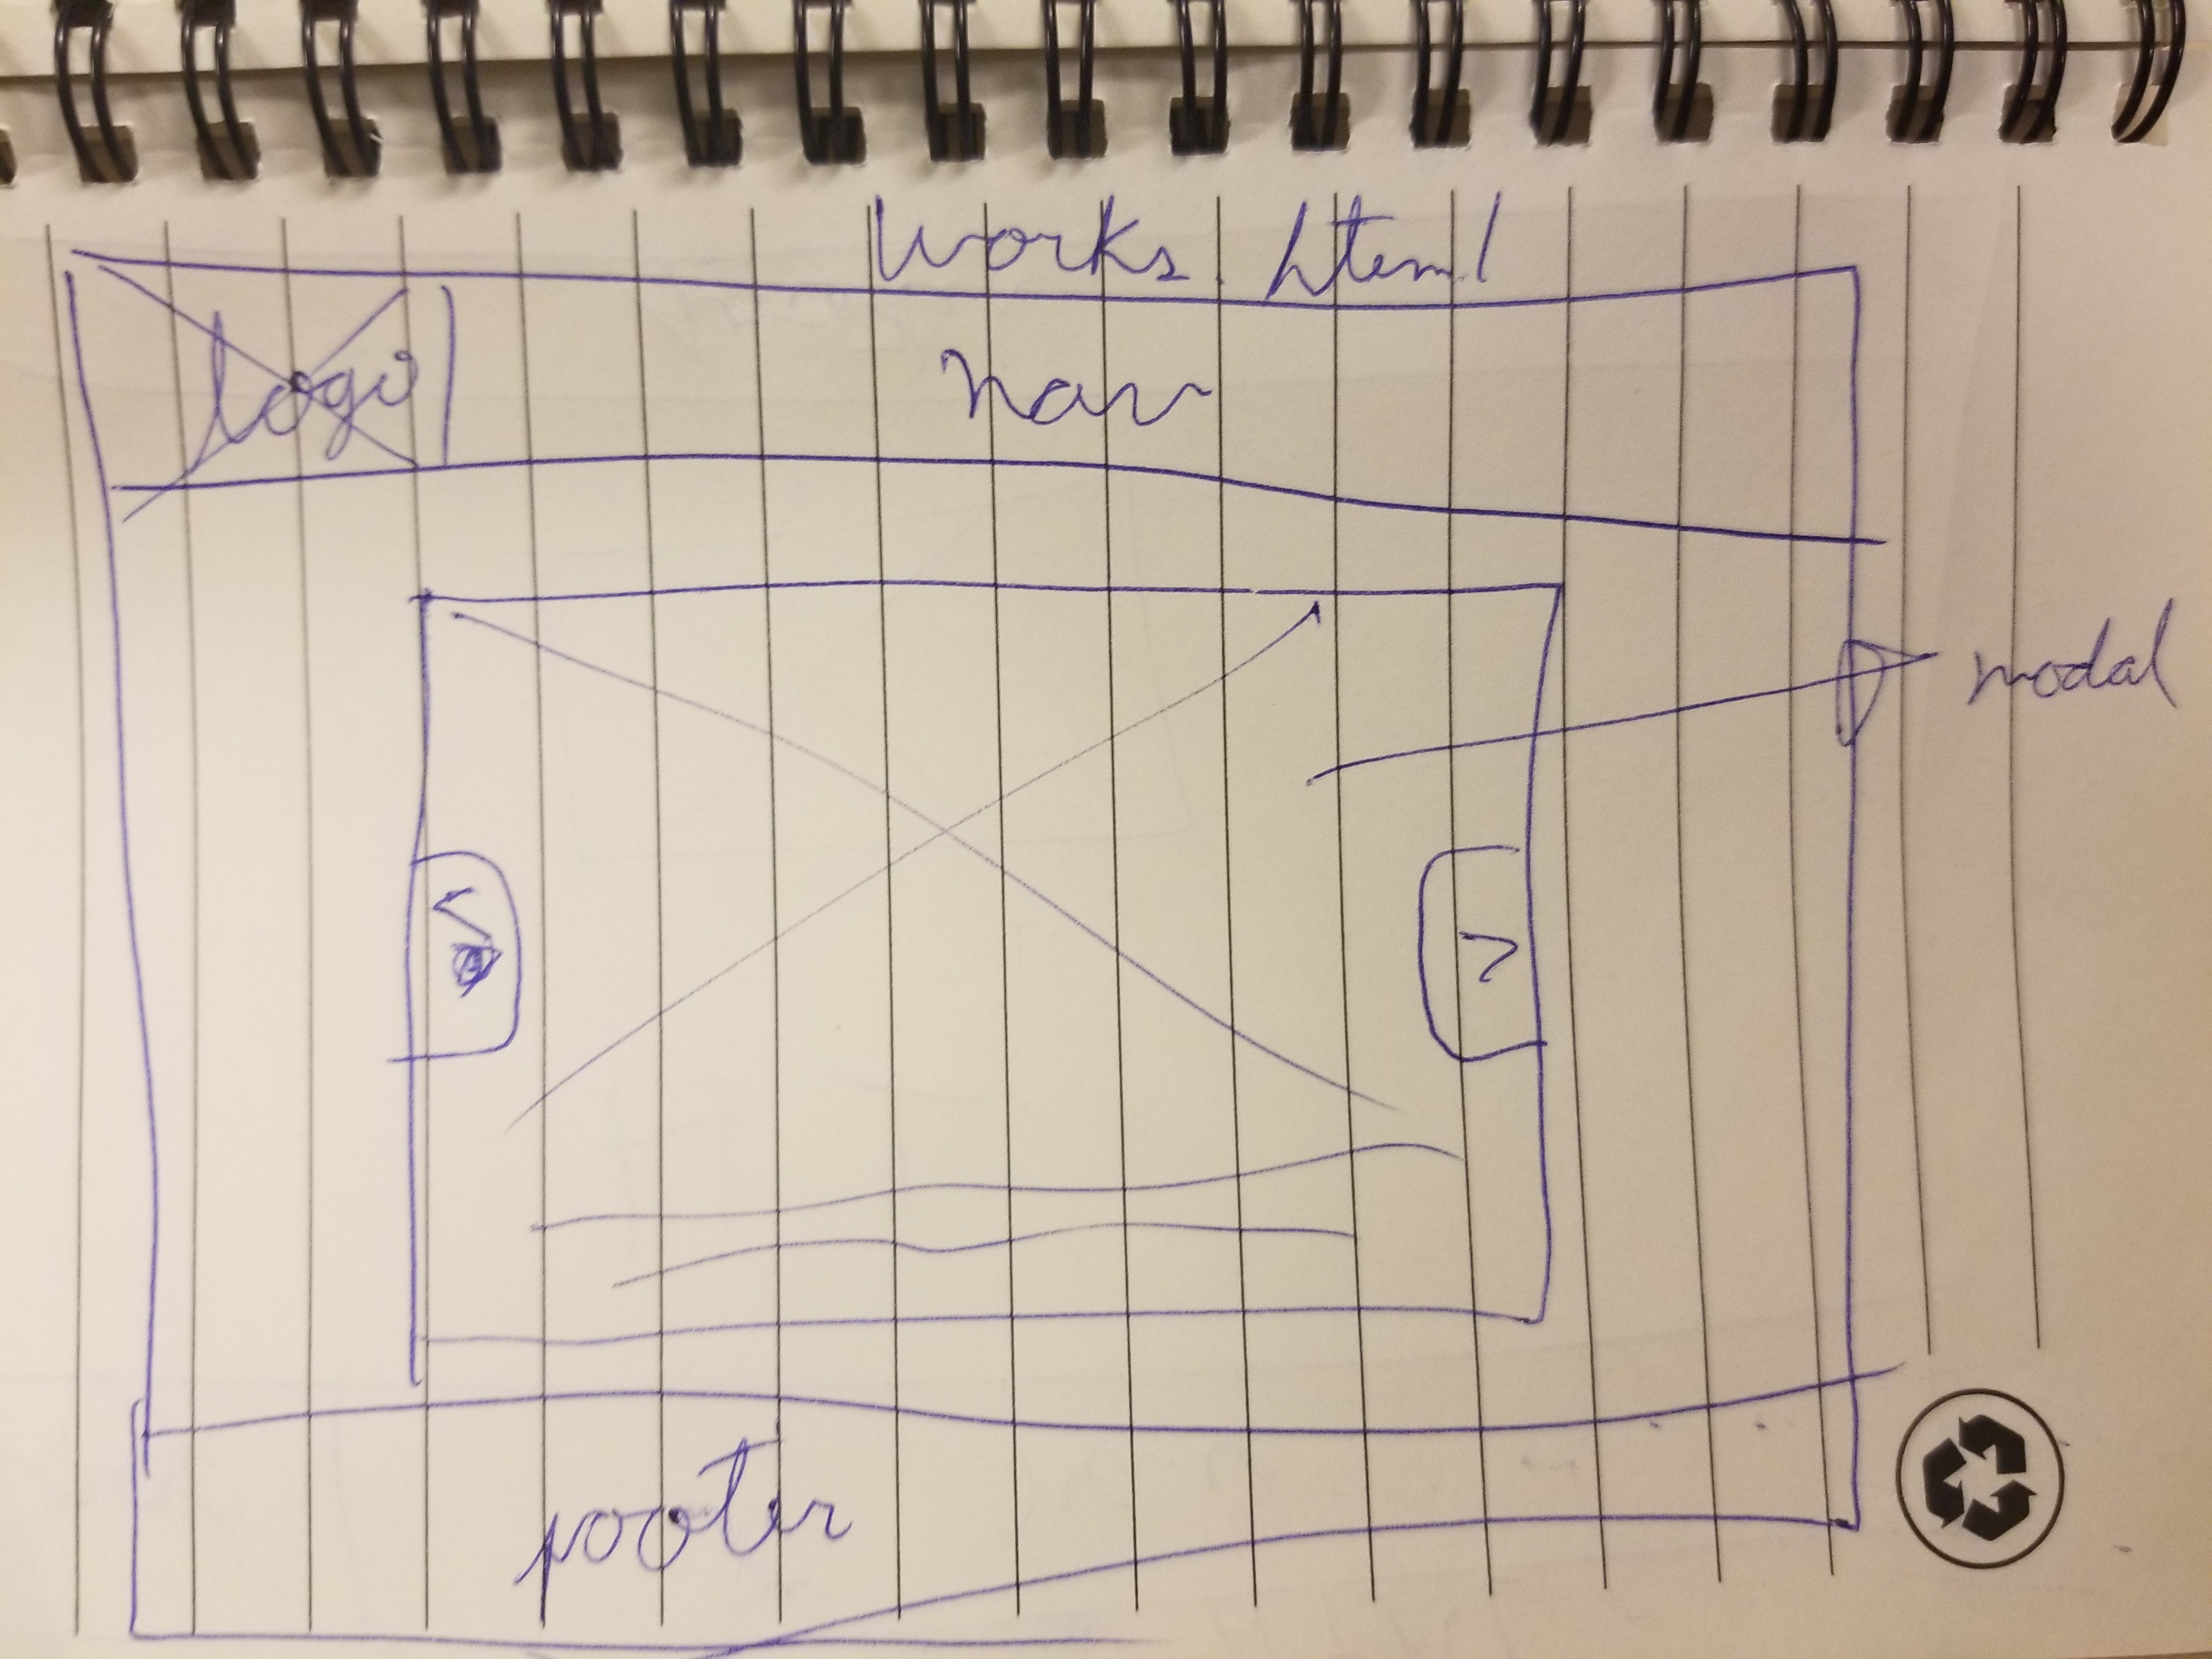 works.html
logo
nav
modal
<
>
footer